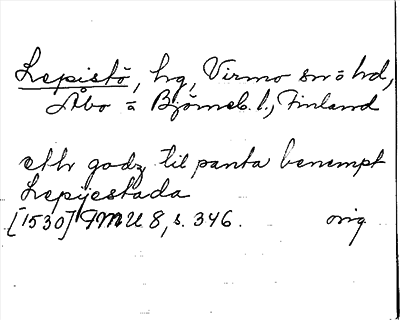 Lepistö, hg, Virmo sn o hd,
Åbo o Björneb. l., Finland
ett godz til panta benempt
Lepijestada
[1530] FMU 8, s. 346. orig